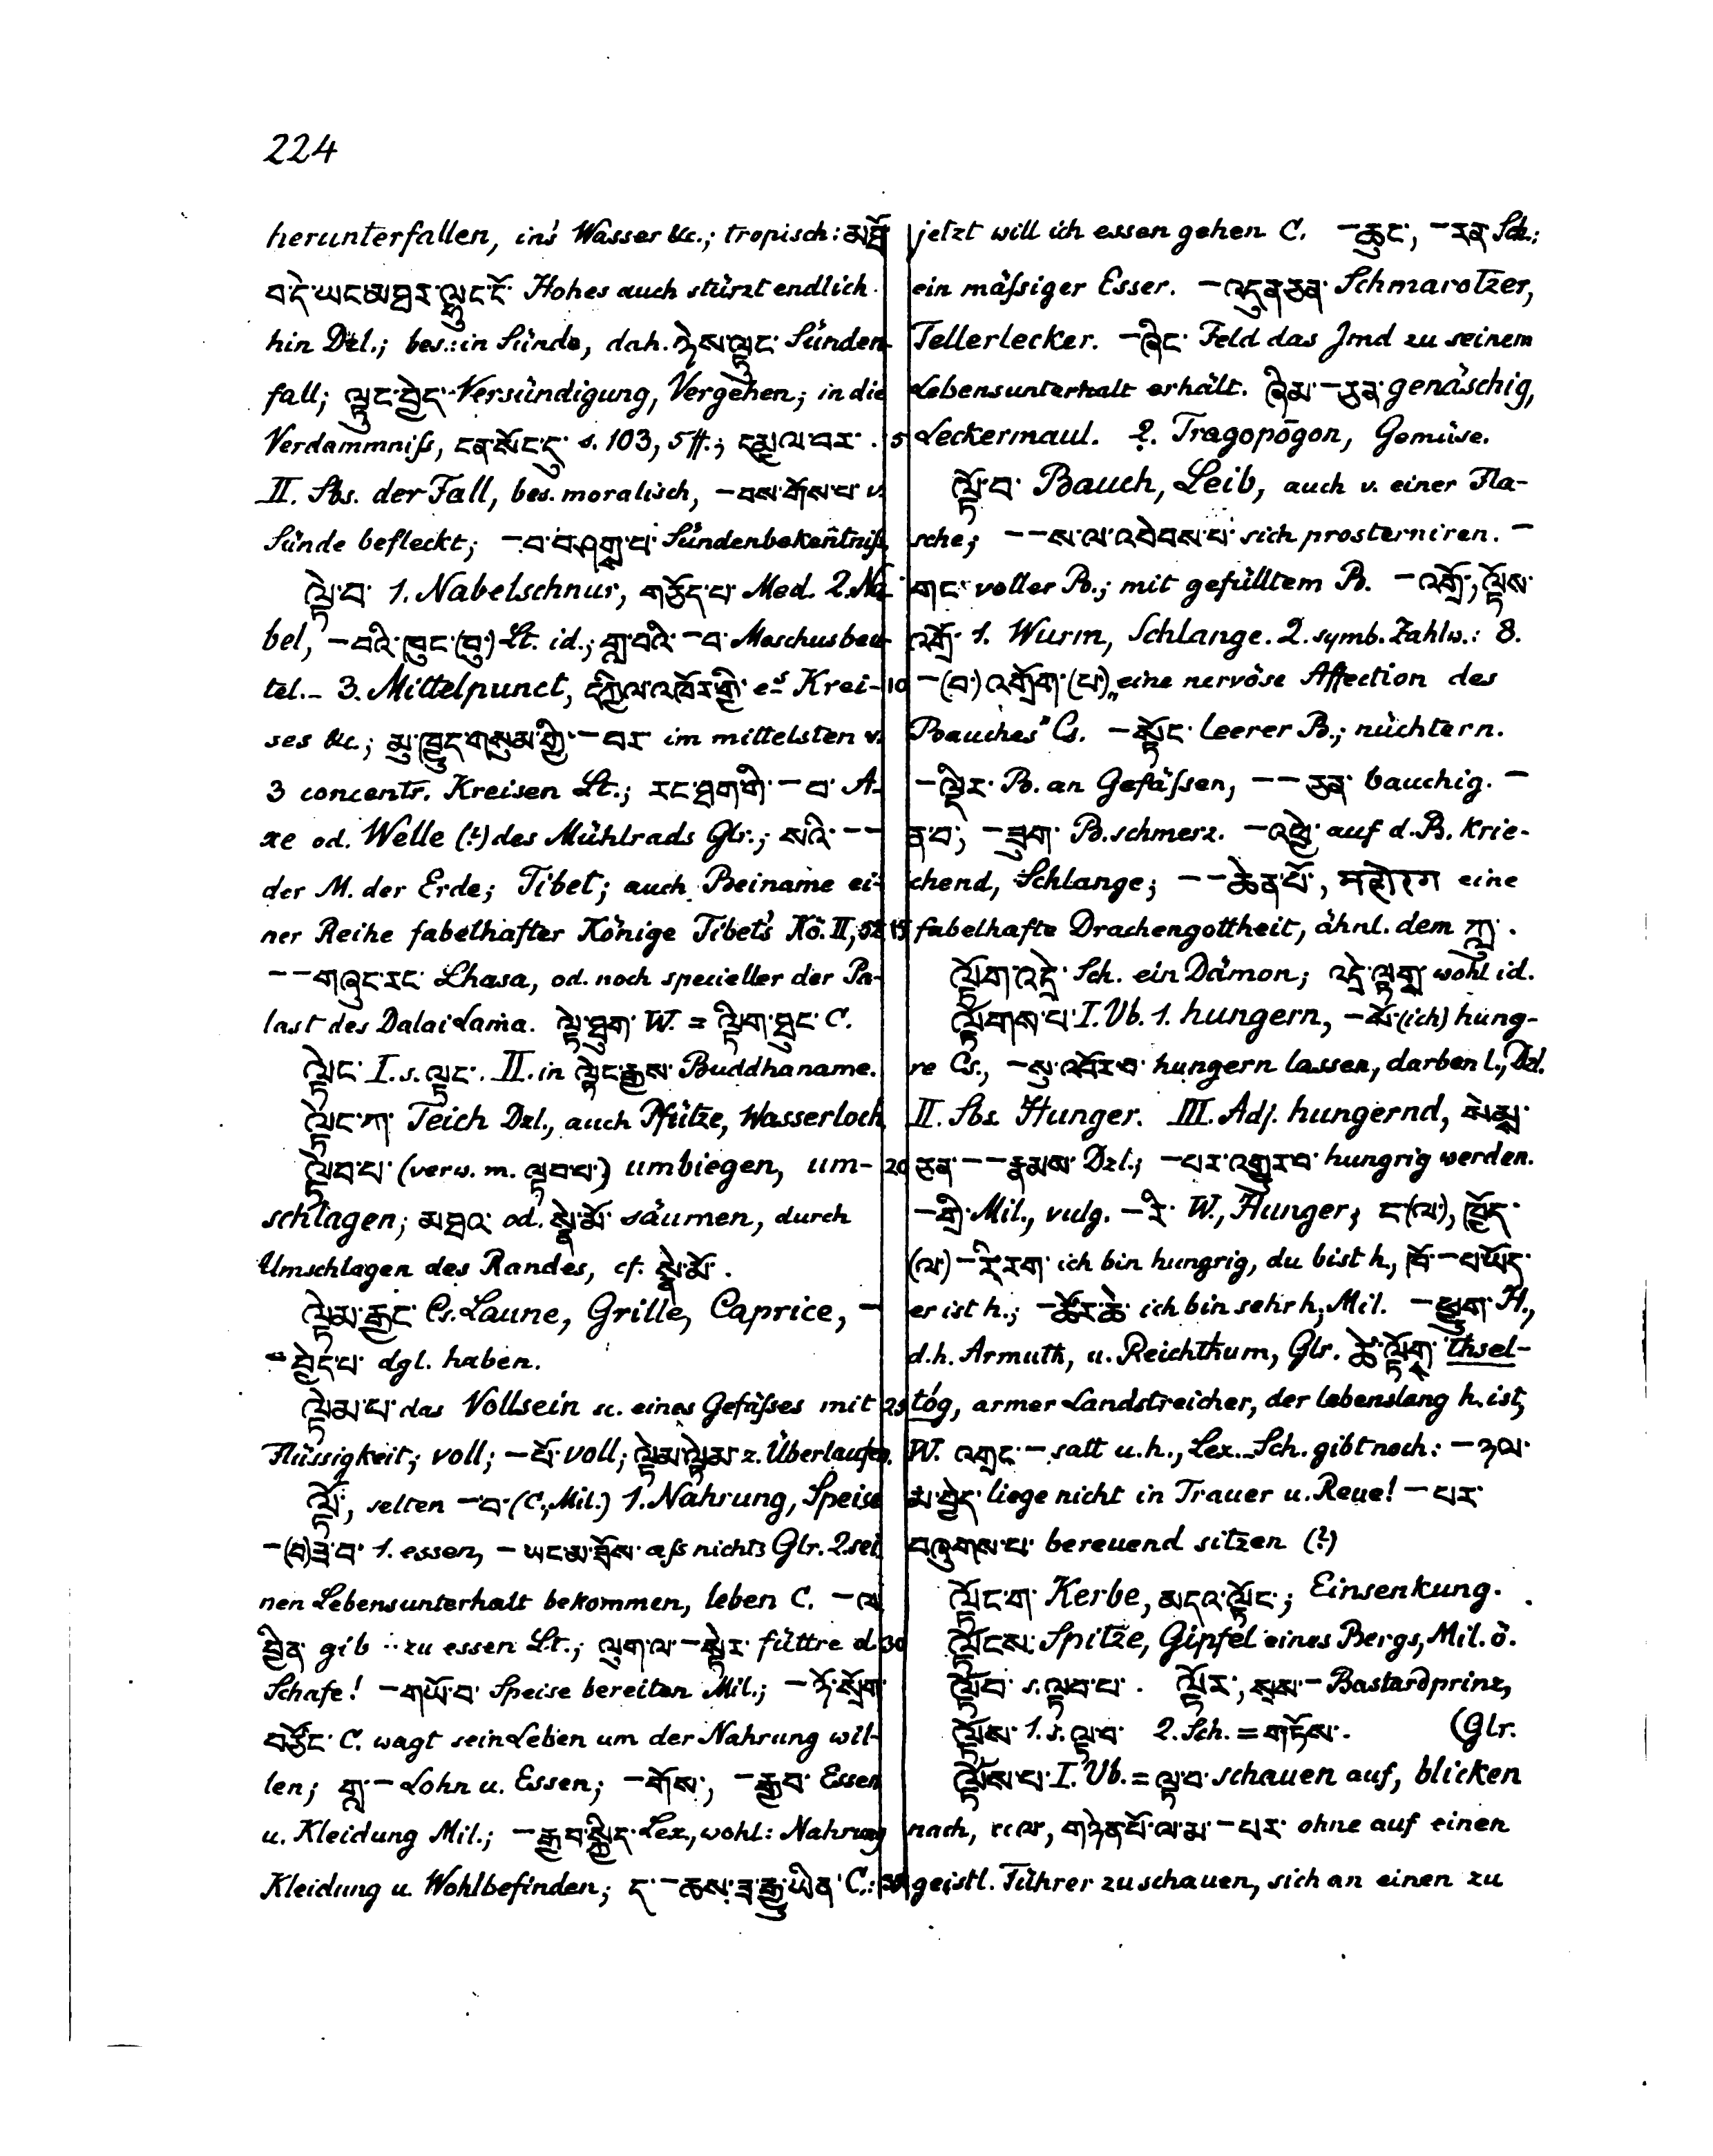 224
herunterfallen, in's Wasser &c.; tropisch: མཐོ
བ་དེ་ཡང་མཐར་ལྟུང་ངོ་ Hohes auch stürzt endlich
hin Dzl.; bes.: in Sünde, dah. ཉེས་ལྟུང་ Sünden-
fall; ལྟུང་བྱེད་ Versündigung, Vergehen; in die
Verdammniß, ངན་སོང་དུ་ s. 103, 5 ff.; དམྱལ་བར་.
II. Sbs. der Fall, bes. moralisch, –བས་གོས་པ་ v.
Sünde befleckt; –བ་བཤགས་པ་ Sündenbekeñtniß
ལྟེ་བ་ 1. Nabelschnur, གཅོད་པ་ Med. 2. Na-
bel, –བའི་ཁུང་(བུ་) Lt. id.; གླ་བའི་–བ་ Moschusbeu-
tel. – 3. Mittelpunct, དཀྱིལ་འཁོར་གྱི་ es Krei-
ses &c.; མུ་ཁྱུད་གསུམ་གྱི་–བར་ im mittelsten v.
3 concentr. Kreisen Lt.; རང་ཐག་གི་–བ་ A-
xe od. Welle (?) des Mühlrads Glr.; སའི་––
der M. der Erde; Tibet; auch Beiname ei-
ner Reihe fabelhafter Könige Tibet's Kö. II, 52
––གཞུང་རང་ Lhasa, od. noch specieller der Pa-
last des Dalai Lama. ལྟེ་ཐུག་ W. = ལྟིག་ཐུང་ C.
ལྟེང་ I. s. ལྟང་. II. in ལྟེང་རྒྱས་ Buddhaname.
ལྟེང་ཀ་ Teich Dzl., auch Pfütze, Wasserloch
ལྟེབ་པ་ (verw. m. ལྟབ་པ་) umbiegen, um-
schlagen; མཐའ་ od. སྣེ་མོ་ säumen, durch
Umschlagen des Randes, cf. སྣེ་མོ་.
ལྟེམ་རྒྱང་ Cs. Laune, Grille, Caprice, –
–བྱེད་པ་ dgl. haben.
ལྟེམ་པ་ das Vollsein sc. eines Gefäßes mit
Flüssigkeit; voll; –པོ་ voll; ལྟེམ་ལྟེམ་ z. Überlaufen.
ལྟོ་, selten –བ་ (C., Mil.) 1. Nahrung, Speise
–(བ་)ཟ་བ་ 1. essen, –ཡང་མ་ཟོས་ aß nichts Glr. 2. sei-
nen Lebensunterhalt bekommen, leben C. –ལ་
བྱིན་ gib – zu essen Lt.; ལུག་ལ་–སྟེར་ füttre d.
Schafe! –གཡོ་བ་ Speise bereiten Mil.; –ཉོ་སྲོག་
བཙོང་ C. wagt sein Leben um der Nahrung wil-
len; གླ་– Lohn u. Essen; –གོས་, –རྒྱབ་ Essen
u. Kleidung Mil.; –རྒྱབ་སྐྱིད་ Lex., wohl: Nahrung
Kleidung u. Wohlbefinden; ད་–ཆས་ཟ་རྒྱུ་ཡིན་ C.:
jetzt will ich essen gehen C. –ཆུང་, –རན་ Sch.:
ein mäßiger Esser. –འདུན་ཅན་ Schmarotzer,
Tellerlecker. –ཞིང་ Feld das Jmd zu seinem
Lebensunterhalt erhält. ཞིམ་–ཅན་ genäschig,
5 Leckermaul. 2. Tragopōgon, Gemüse.
ལྟོ་བ་ Bauch, Leib, auch v. einer Fla-
sche; ––ས་ལ་འབེབས་པ་ sich prosterniren. –
གང་ voller B.; mit gefülltem B. –འགྲོ་, ལྟོས་
འགྲོ་ 1. Wurm, Schlange. 2. symb. Zahlw.: 8.
10 –(བ་)འགྲོག་(པ་) „eine nervöse Affection des
Bauches“ Cs. –སྟོང་ leerer B.; nüchtern.
–ལྡིར་ B. an Gefäßen, ––ཅན་ bauchig. –
ན་བ་, –ཟུག་ B.schmerz. –འཕྱེ་ auf d. B. krie-
chend, Schlange; ––ཆེན་པོ་, महोरग eine
15 fabelhafte Drachengottheit, ähnl. dem ཀླུ་.
ལྟོག་འདྲེ་ Sch. ein Dämon; འདྲེ་ལྟག་ wohl id.
ལྟོགས་པ་ I. Vb. 1. hungern, –སོ་ (ich) hung-
re Cs., –སུ་འབོར་བ་ hungern lassen, darben l., Dzl.
II. Sbs. Hunger. III. Adj. hungernd, སེམས་
20 ཅན་––རྣམས་ Dzl.; –པར་འགྱུར་བ་ hungrig werden.
–གྲི་ Mil., vulg. –རི་ W., Hunger; ང་(ལ་), ཁྱོད་
(ལ་)–རི་རག་ ich bin hungrig, du bist h., ཁོ་–པ་ཡོད་
er ist h.; –ཚོར་ཆེ་ ich bin sehr h., Mil. –ཕྱུག་ H.,
d.h. Armuth, u. Reichthum, Glr. ཚེ་ལྟོག་ thsel-
25 tóg, armer Landstreicher, der lebenslang h. ist,
W. འགྲང་– satt u. h., Lex. – Sch. gibt noch: –ཉལ་
མ་བྱེད་ liege nicht in Trauer u. Reue! –པར་
བཞུགས་པ་ bereuend sitzen (?)
ལྟོང་ག་ Kerbe, མདའ་ལྟོང་; Einsenkung.
30 ལྟོངས་ Spitze, Gipfel eines Bergs, Mil. ö.
ལྟོབ་ s. ལྟབ་པ་. ལྟོར་, སྲས་– Bastardprinz,
ལྟོས་ 1. s. ལྟ་བ་ 2. Sch. = གཏོས་. (Glr.
ལྟོས་པ་ I. Vb. = ལྟ་བ་ schauen auf, blicken
nach, c. ལ་, གཉེན་པོ་ལ་མ་–པར་ ohne auf einen
35 geistl. Führer zu schauen, sich an einen zu